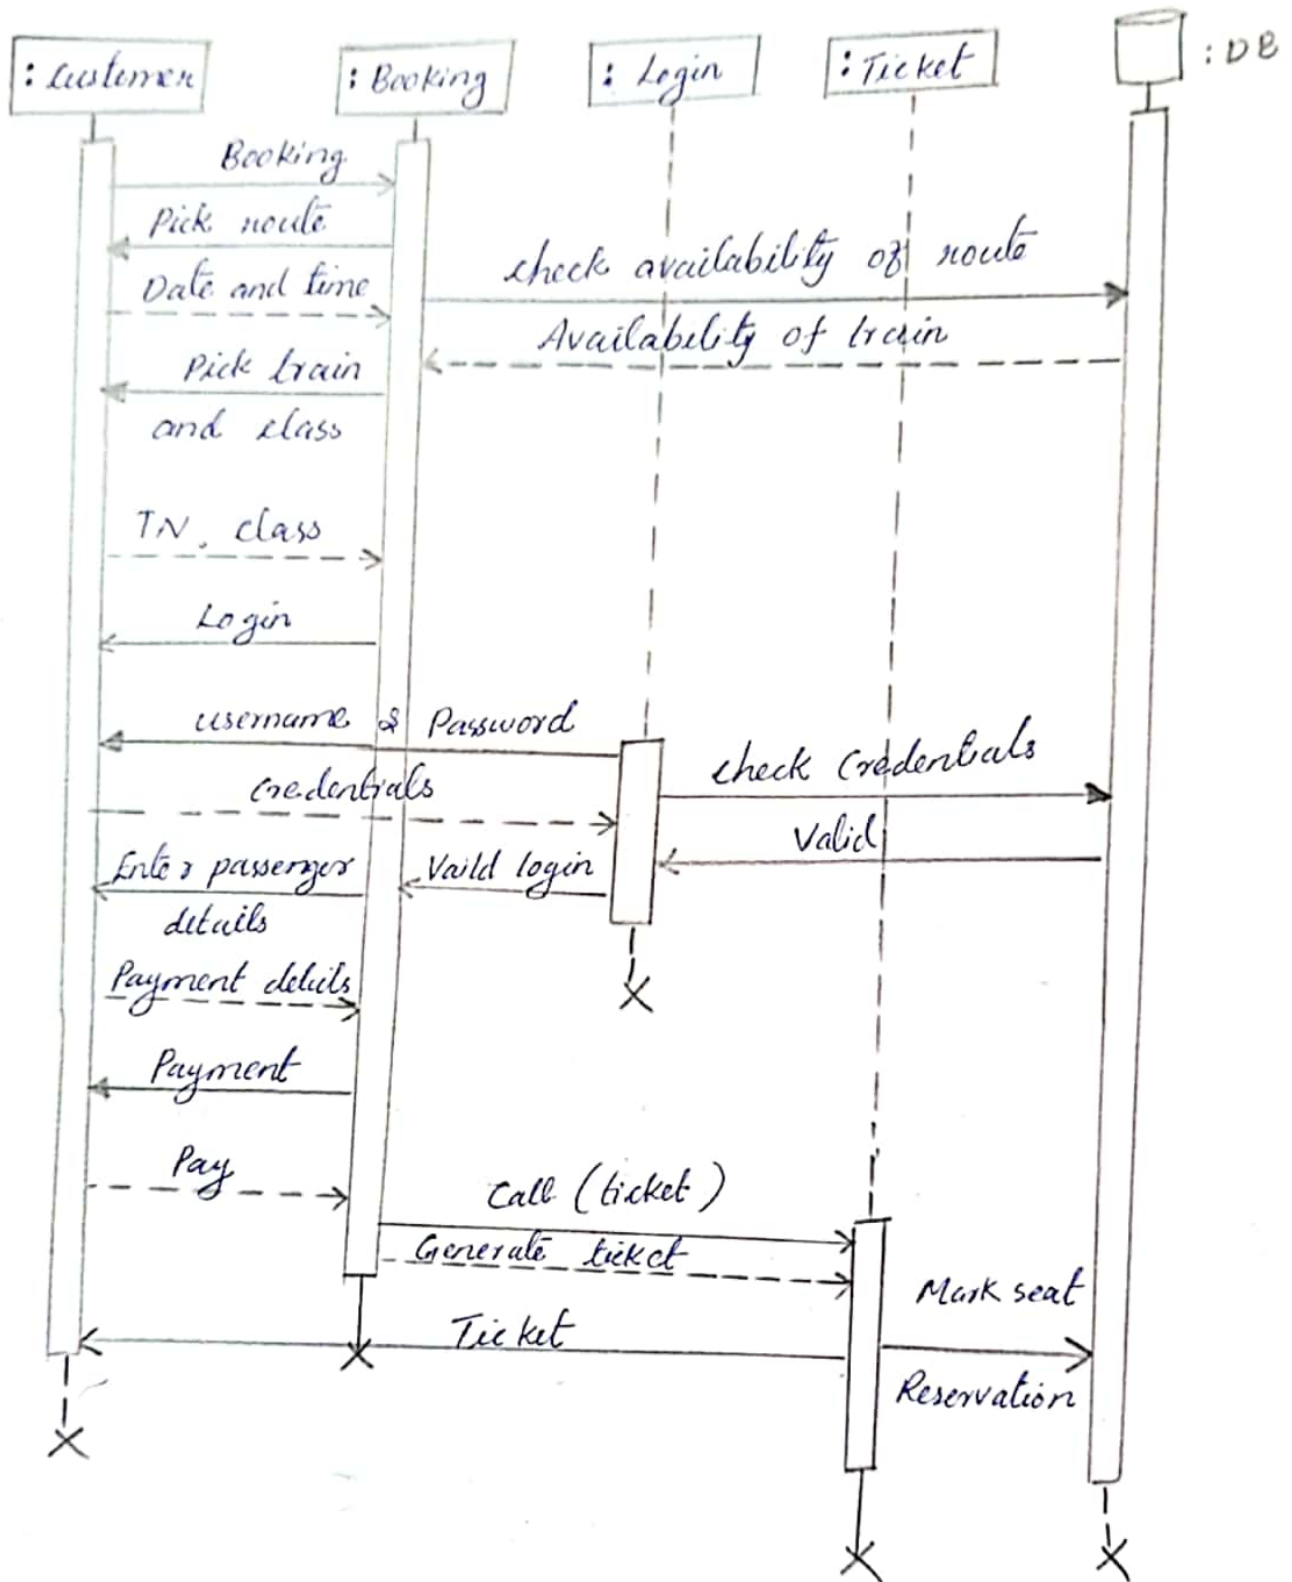 : Customer
: Booking
: Login
: Ticket
: DB
Booking
Pick route
check availability of route
Date and time
Availability of train
Pick train
and class
TN. class
Login
username & Password
check Credentials
credentials
Valid
Enter passenger
Vaild login
details
Payment details
Payment
Pay
Call (ticket)
Generate ticket
Mark seat
Ticket
Reservation